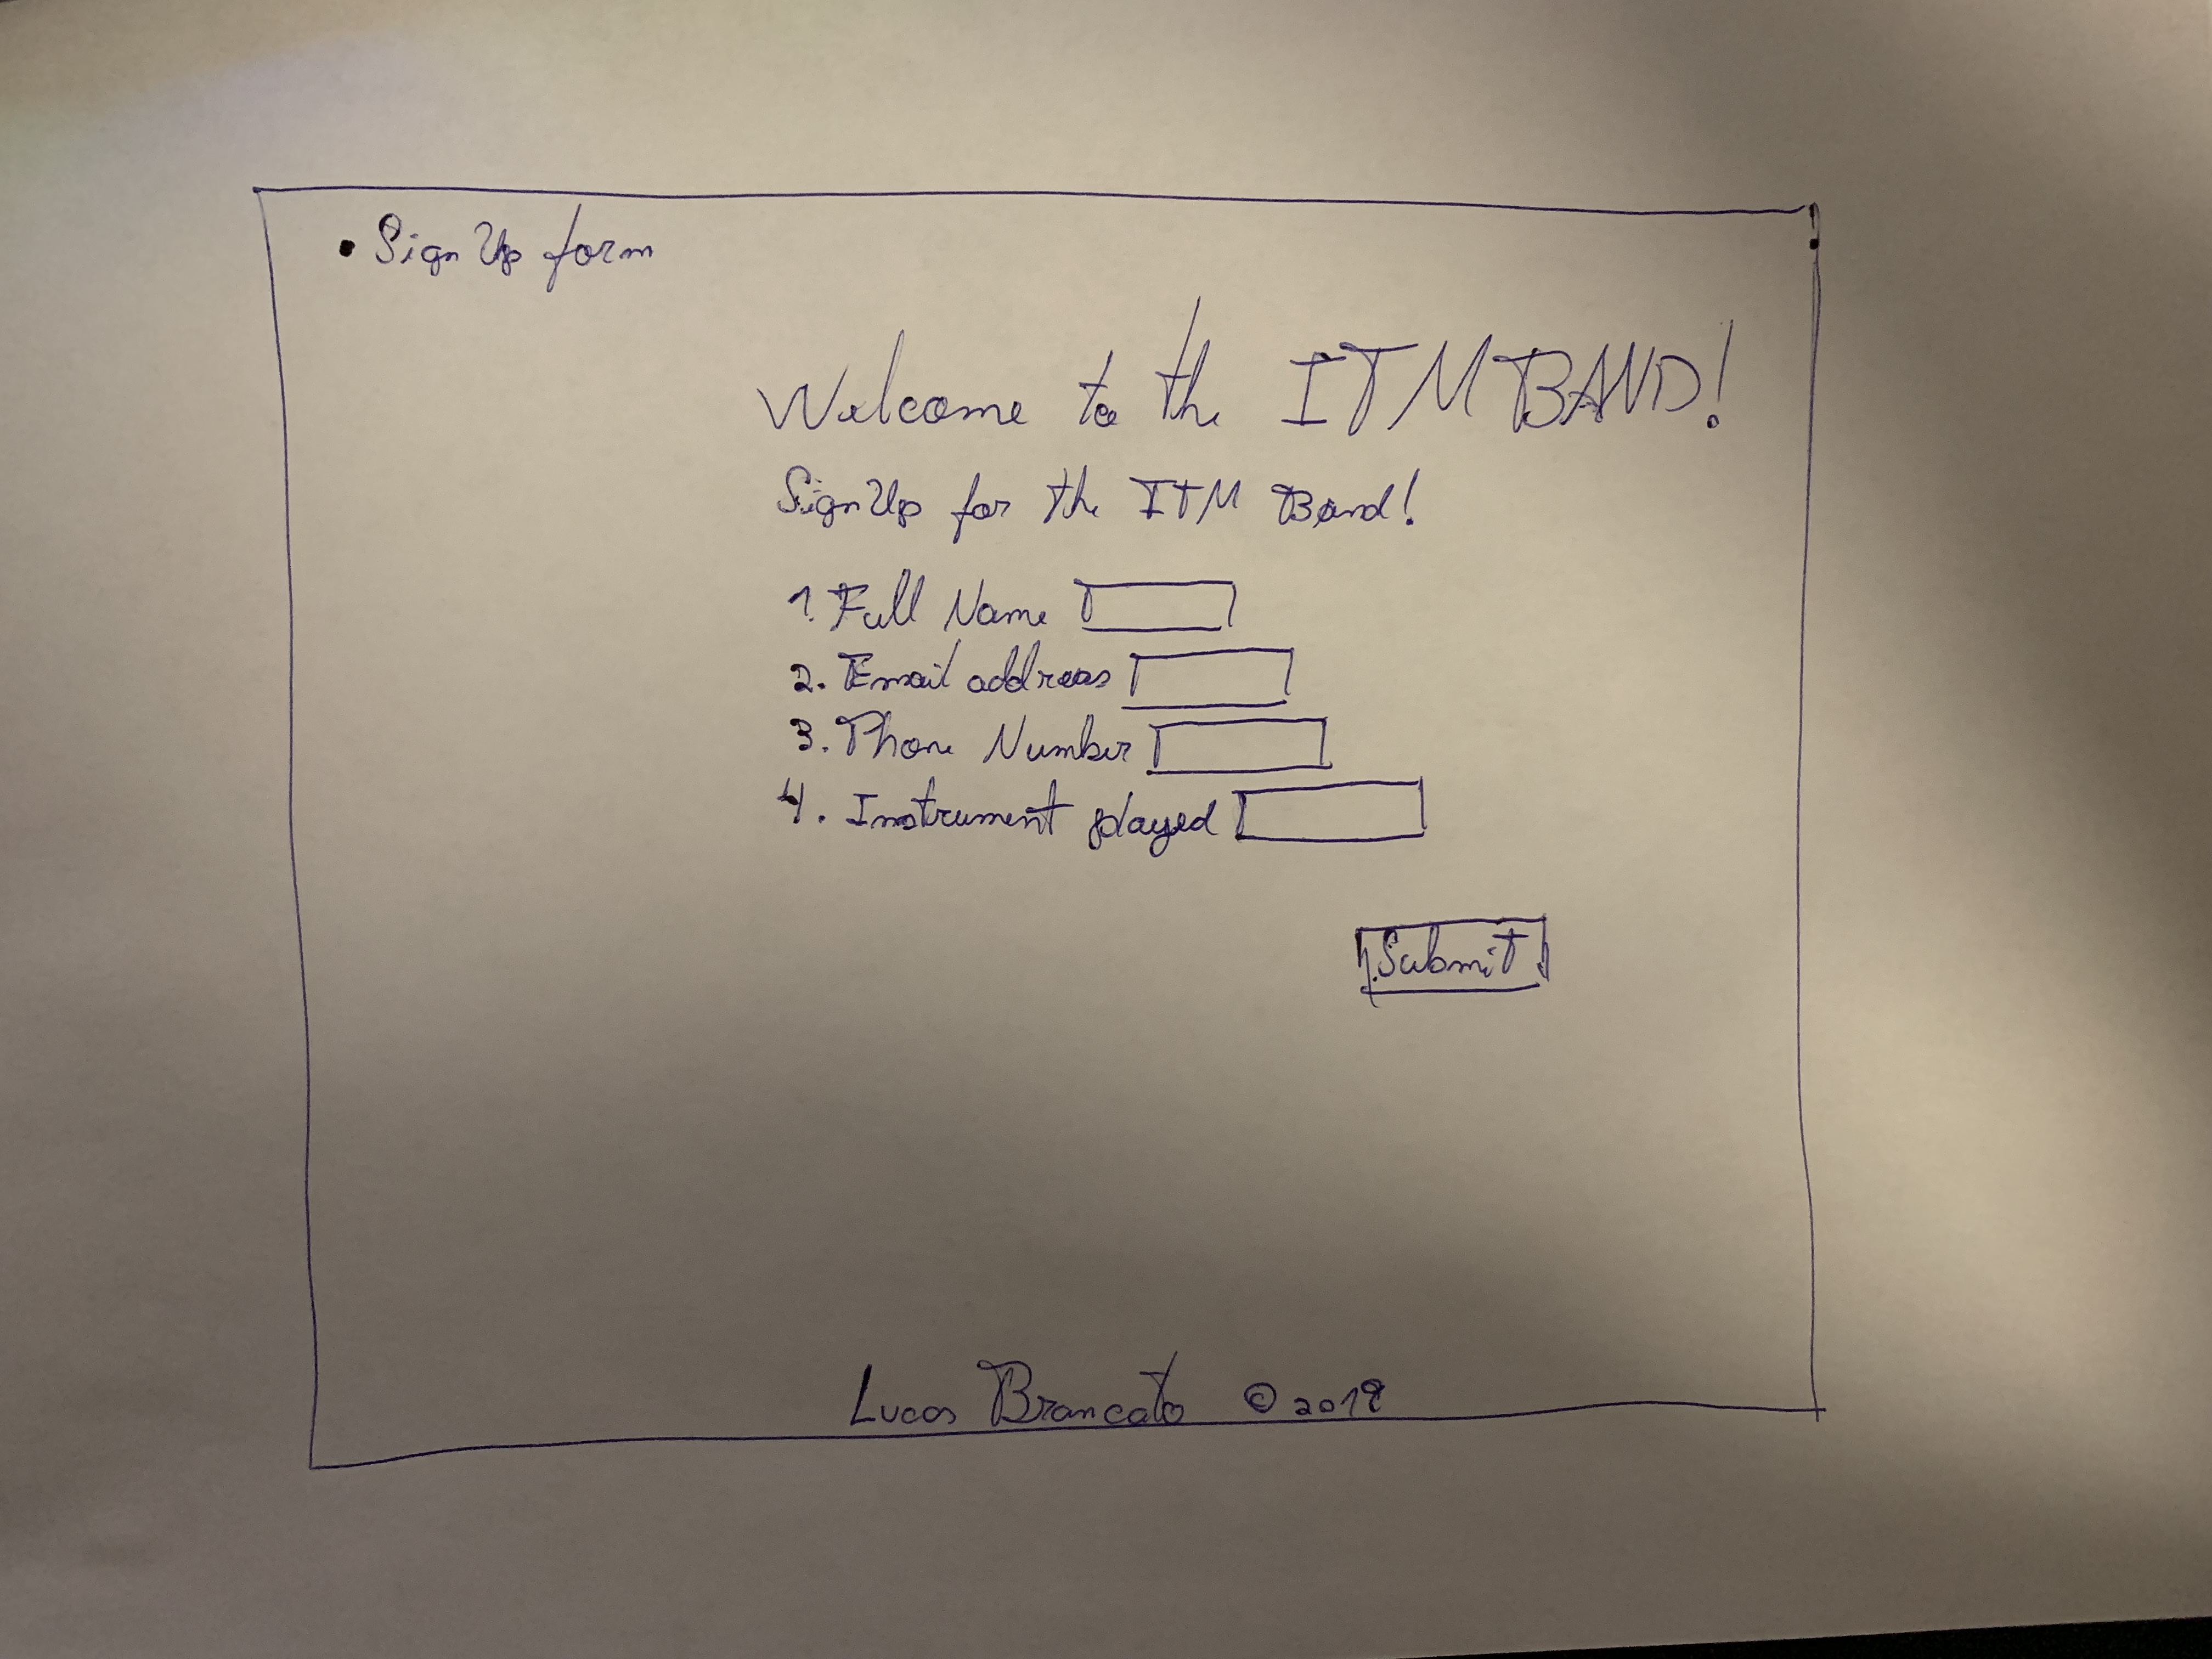 • Sign Up form
Welcome to the ITM BAND!
Sign Up for the ITM Band!
1. Full Name
2. Email address
3. Phone Number
4. Instrument played
Submit
Lucas Brancato © 2018